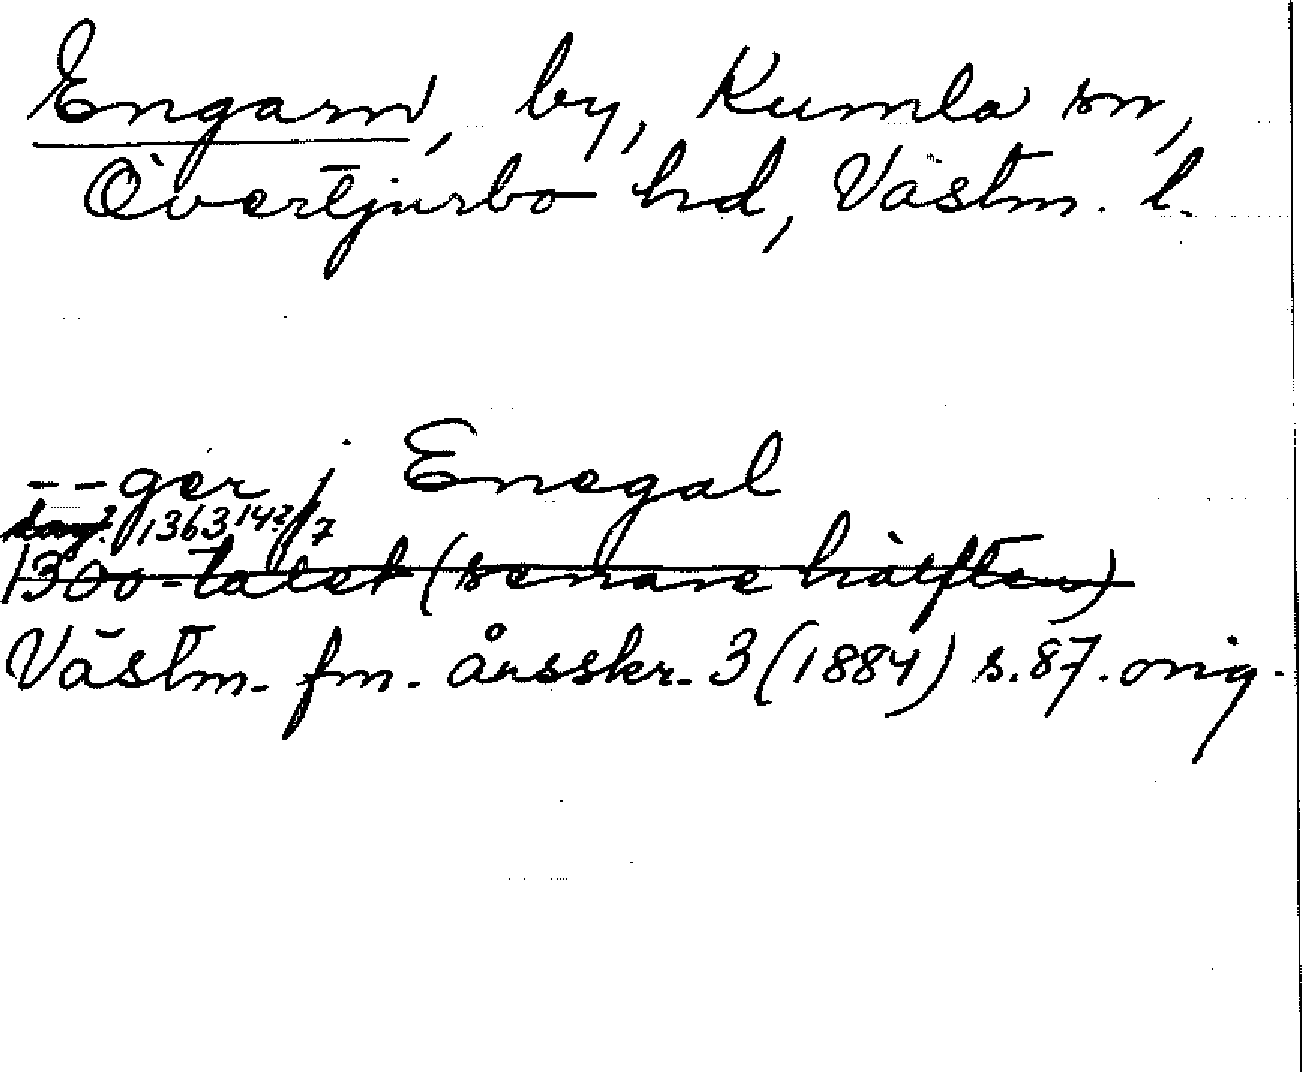 Engarn, by, Kumla sn,
Övertjurbo hd, Västm. l.
--ger j Enegal
1363 14?/7
1300-talet (senare hälften)
Västm. fm. årsskr. 3 (1884) s. 87. orig.